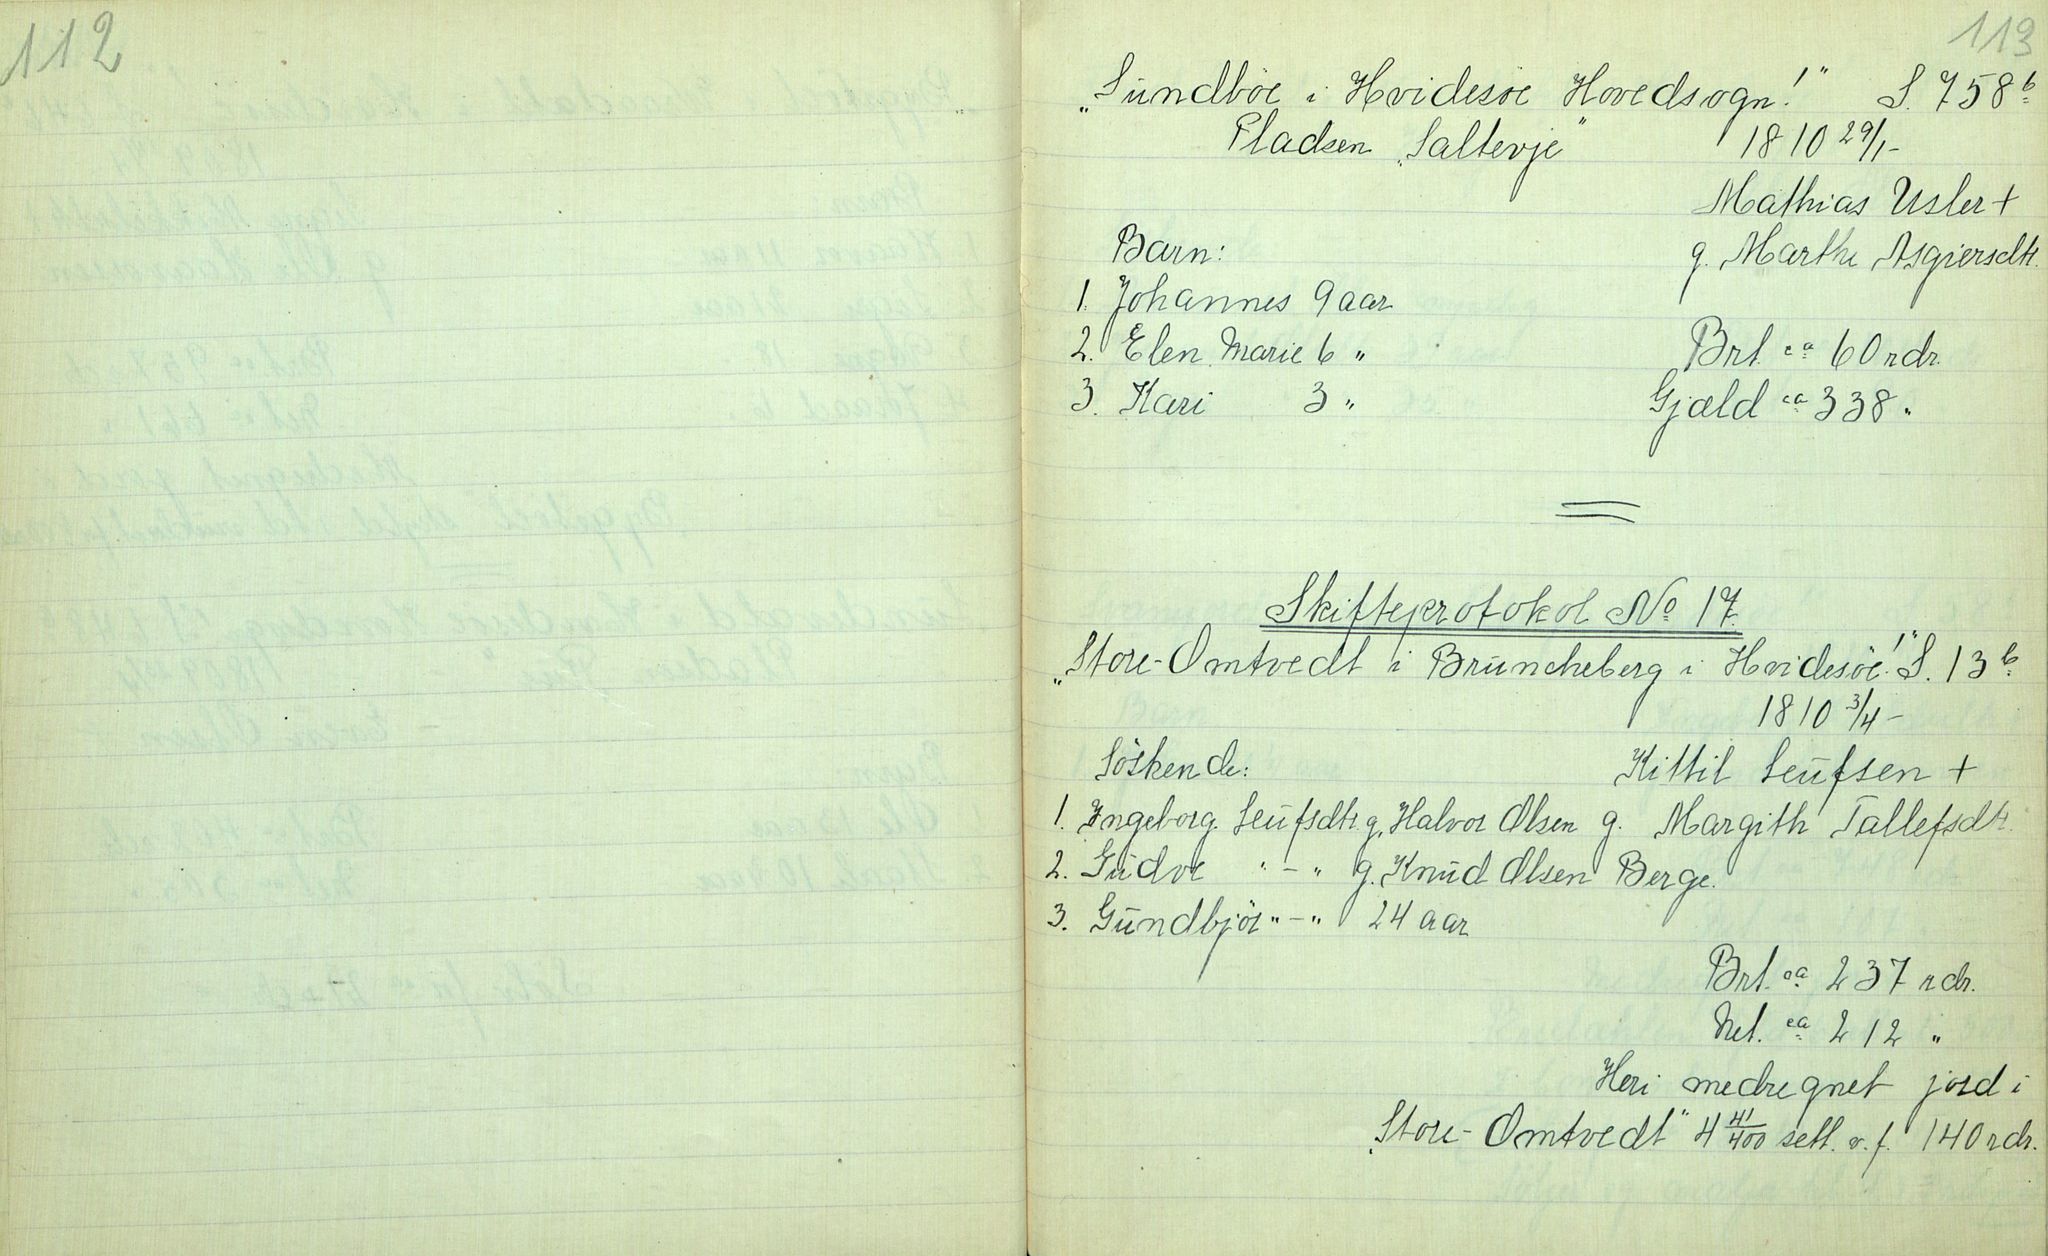 112
113
„Sundböe i Hvidesöe Hovedsogn!" S. 758b
Pladsen „Saltevje" 1810 29/1-
Mathias Usler +
Barn: g. Marthe Asgiersdtr.
1. Johannes 9 aar
2. Elen Marie 6 „ Brt. ca 60 rdr.
3. Kari 3 „ Gjæld ca 338 „
Skifteprotokol No 17.
„Store-Omtvedt i Bruncheberg i Hvidesöe!" S. 13b
1810 3/4-
Söskende: Kittil Leufsen +
1. Ingeborg Leufsdtr g. Halvor Olsen g. Margith Tallefsdtr.
2. Gudve „-„ g. Knud Olsen Berge.
3. Gundbjör „-„ 24 aar
Brt. ca 237 rdr.
Net. ca 212 „
Heri medregnet jord i
„Store-Omtvedt" 4 41/400 sett. v. f. 140 rdr.